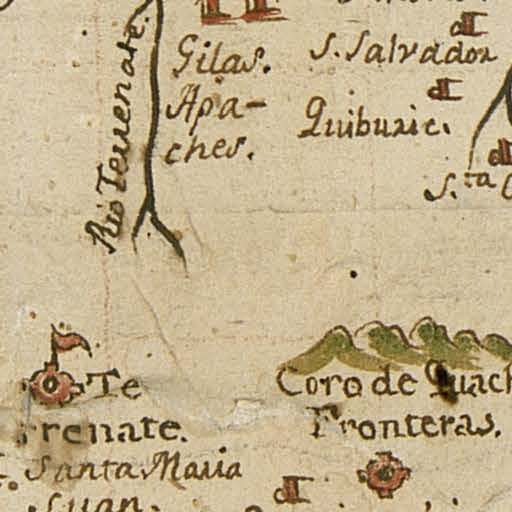 Rio Terrenate.
Gilas.
Apa-
ches.
S. Salvador
Quiburic.
S.ta
Te
rrenate.
Coro de Guach
Fronteras.
Santa Maria
Suan.